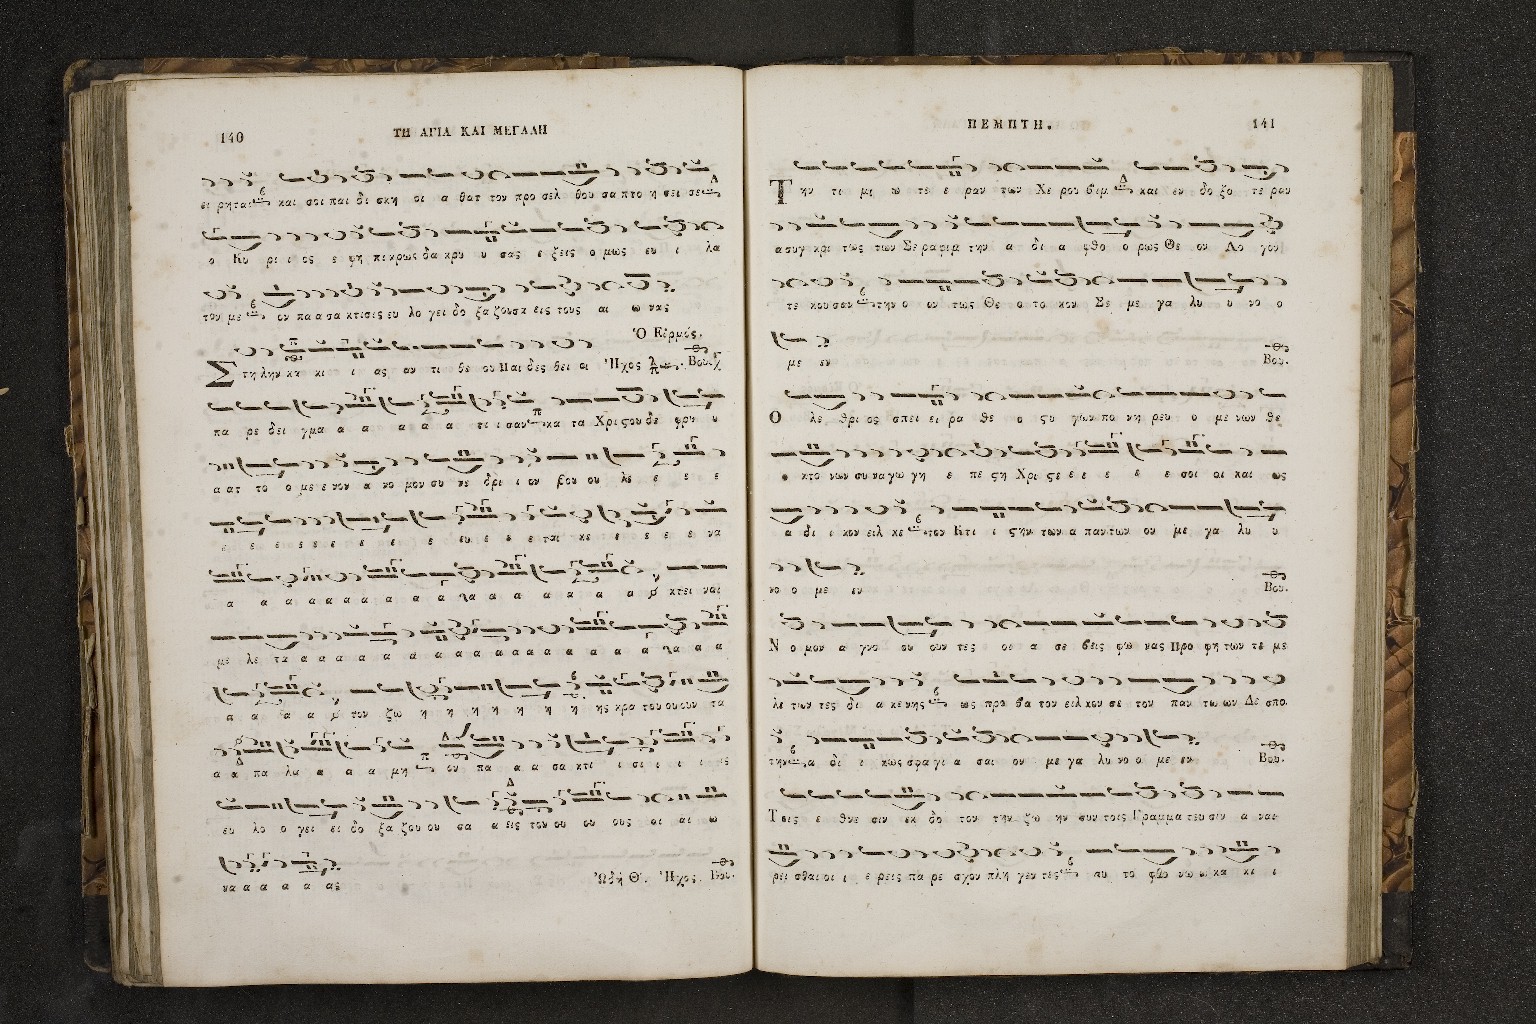 140
ΤΗ ΑΓΙΑ ΚΑΙ ΜΕΓΑΛΗ
ει ρηται και σοι παι δι σκη οι α θατ τον προ σελ θου σα πτο η σει σε
ο Κυ ρι ι ος ε φη πικρως δα κρυ υ σας ε ξεις ο μως ευ ι λα
τον με ον πα α σα κτισις ευ λο γει δο ξα ζουσα εις τους αι ω νας
Ὁ Εἱρμός.
Στη λην κα κι ι ας αν τι θε ου Παι δες θει οι Ἦχος Βου.
πα ρε δει γμα α α α α α τι ι σαν κα τα Χρι ςου δε φρυ υ
α ατ το ο με ε νον α νο μον συ νε δρι ι ον βου ου λε ε ε ε
ε ε ε ε ε ε ε ε ε ευ ε ε ε ται κε ε ε ε ε να
α α α α α α α α α λα α α α α α α κτει ναι
με λε τα α α α α α α α α α α α α α α α α λα α α
α α α α τον ζω η η η η η η η ης κρα του ου ουν τα
α α πα λα α α α μη ου πα α α σα κτι ι σι ι ι ι ις
ευ λο ο γει ει δο ξα ζου ου σα α εις τον ου ου ους αι αι ω
να α α α α ας
Ὠδὴ Θ΄. Ἦχος Βου.
ΠΕΜΠΤΗ.
141
Την τι μι ω τε ε ραν των Χε ρου βιμ και εν δο ξο τε ραν
α συγ κρι τως των Σε ραφιμ την α δι α φθο ο ρως Θε ον Λο γον
τε κου σαν την ο ον τως Θε ο το κον Σε με γα λυ υ νο ο
με εν
Βου.
Ο λε θρι ος σπει ει ρα θε ο ςυ γων πο νη ρευ ο με νων θε
ο κτο νων συ να γω γη ε πε ςη Χρι ςε ε ε ε ε ε σοι οι και ως
α δι ι κον ειλ κε τον Κτι ι ςην των α παντων ον με γα λυ υ
νο ο με εν
Βου.
Ν ο μον α γνο ου ουν τες οι α σε βεις φω νας Προ φη των τε με
λε των τες δι α κε νης ως προ βα τον ειλ κον σε τον παν τω ων Δε σπο.
την α δι ι κως σφα γι α σαι ον με γα λυ νο ο με εν
Βου.
Τοις ε θνε σιν εκ δο τον την ζω ην συν τοις Γραμμα τευ σιν α ναι
ρει σθαι οι ι ε ρεις πα ρε σχον πλη γεν τες αυ το φθο νω ω κα κι ι